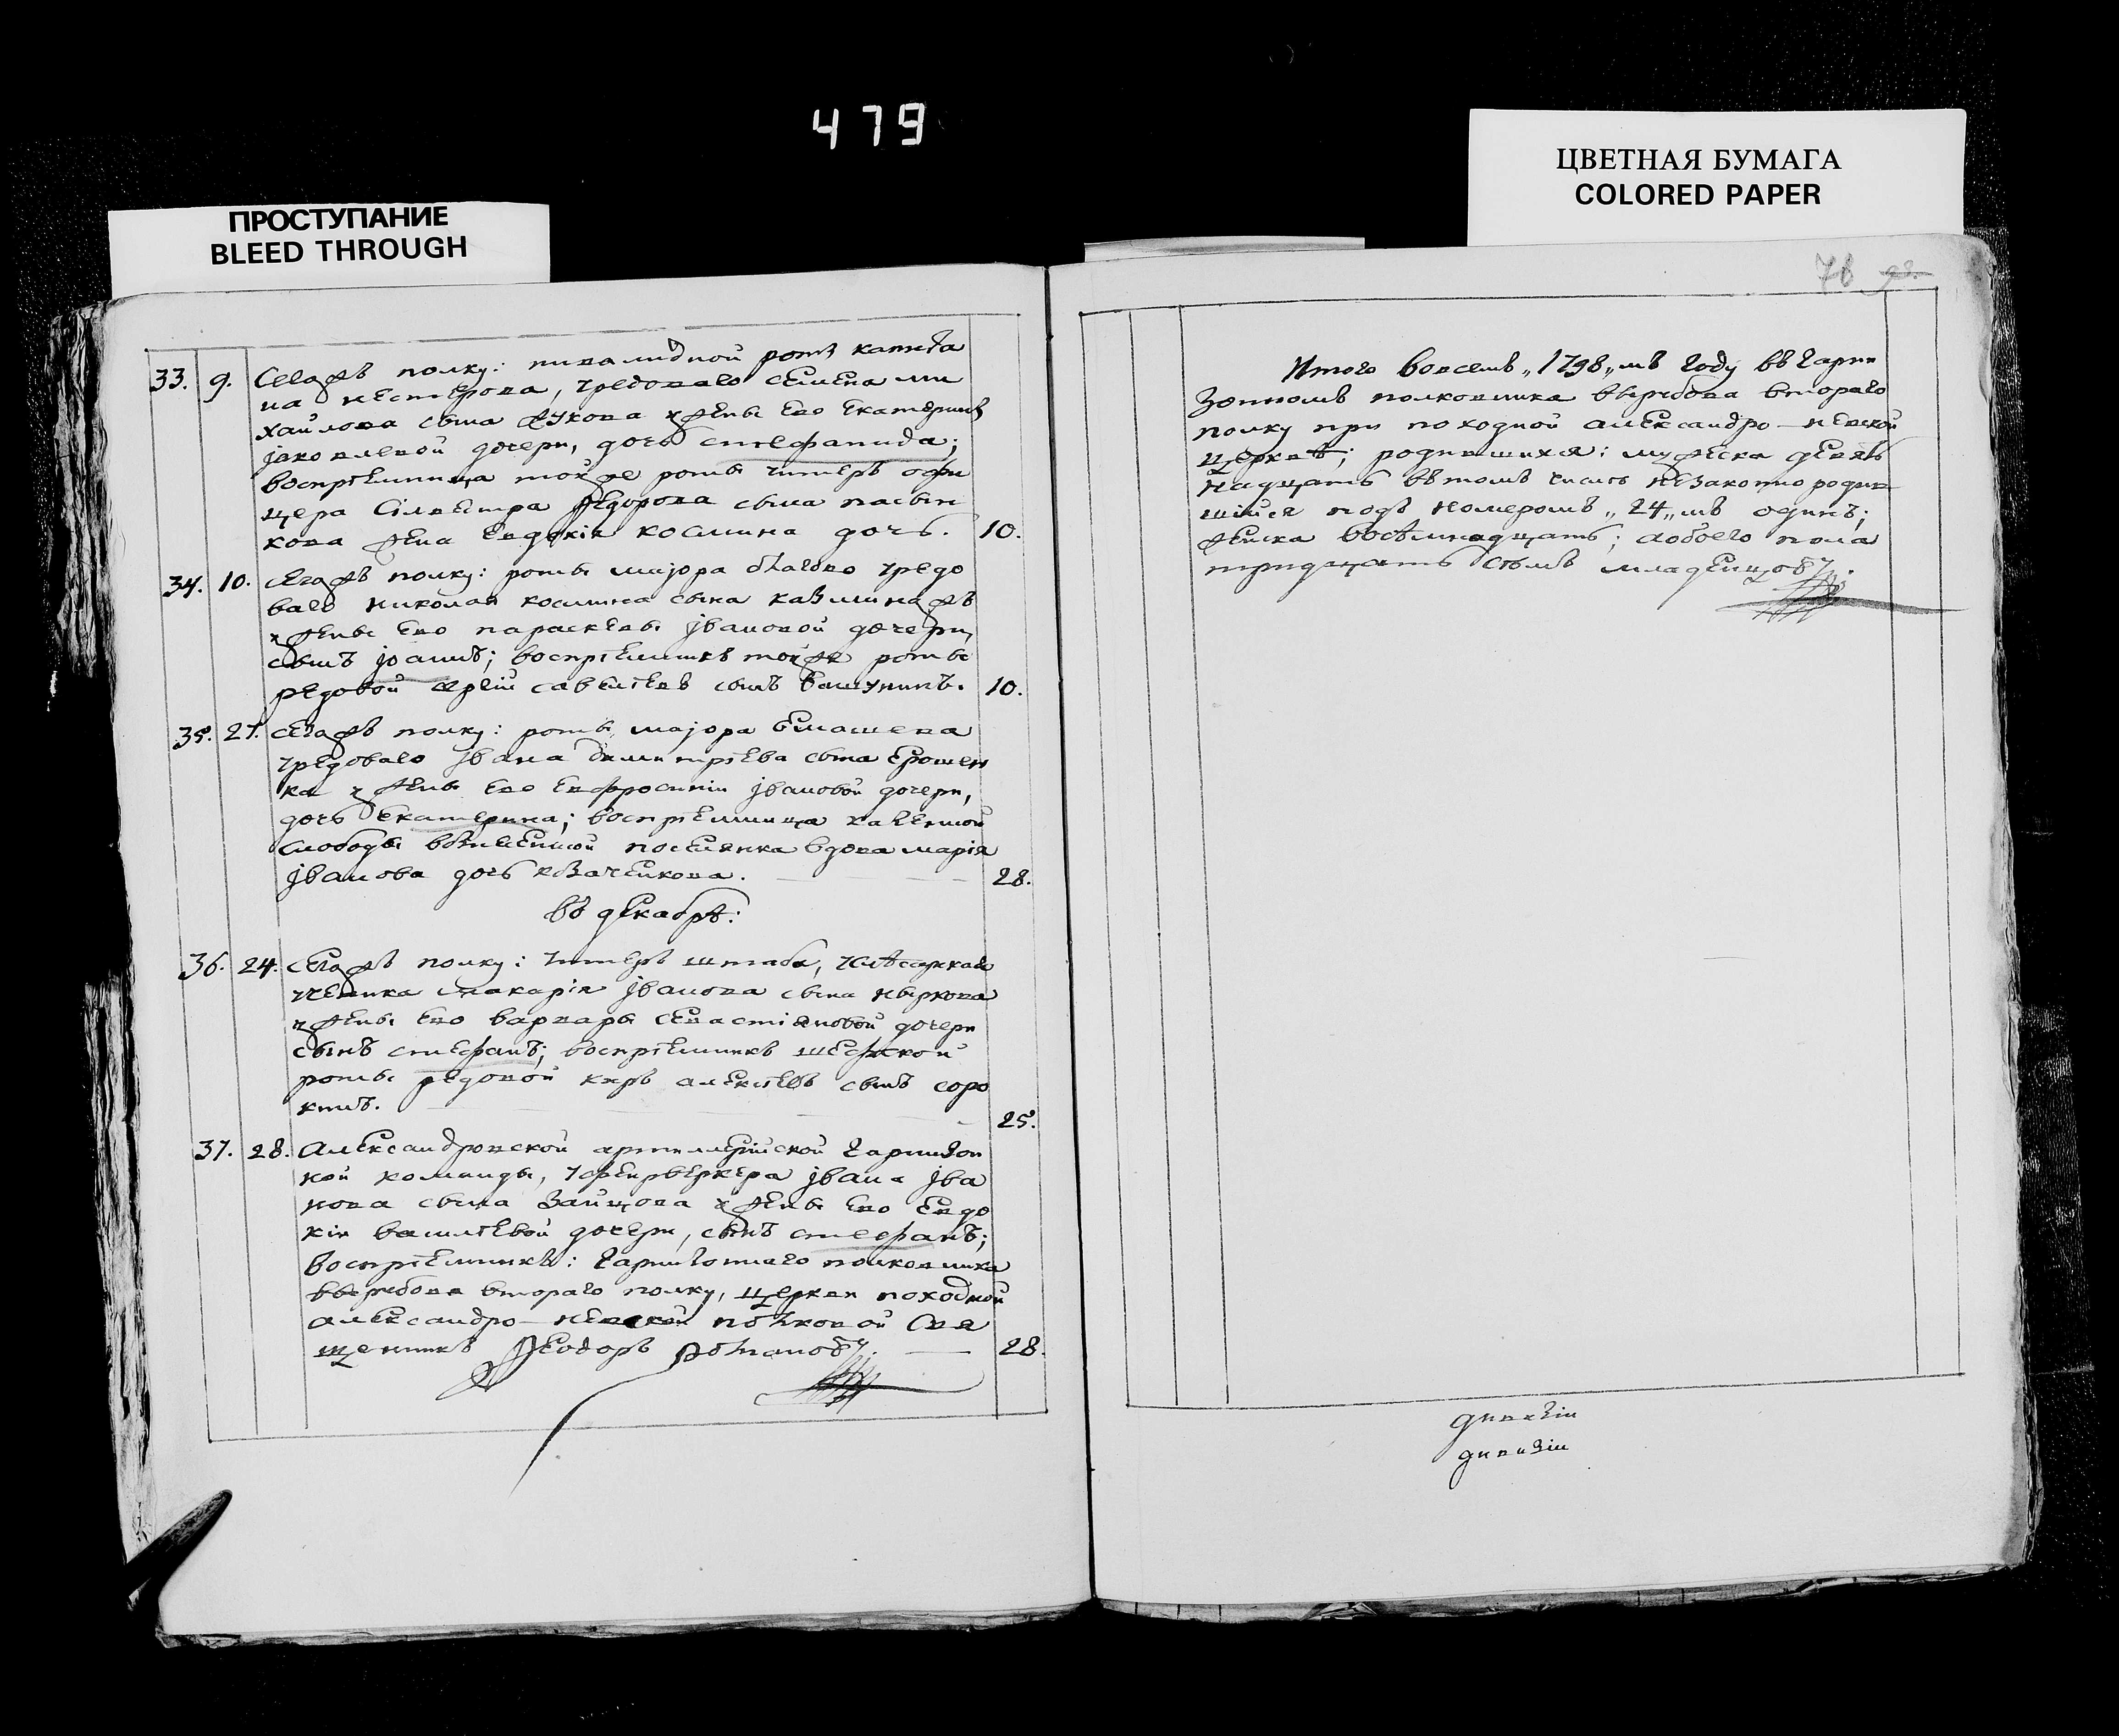 479
ПРОСТУПАНИЕ
BLEED THROUGH
ЦВЕТНАЯ БУМАГА
COLORED PAPER
78 92.
33. 9. Сегожъ полку: инвалидной роты капита
на нестерова, Уредоваго семена ми
хайлова сына жукова Уженые ево екатерины
јаковлевой дочери, дочь стефанида;
воспрїемница тойже роты Унтеръ офи
цера Сілвестра Ѳедорова сына пасын
кова жена Евдокія космина дочь. 10.
34. 10. Сегожъ полку: роты маіора Уредо
ваго николая космина сына
Ужены ево параскевы јвановой дочери,
сынъ јоаннъ; воспрїемникъ тойже роты
редовой сергѣй савелїевъ сынъ 10.
35. 27. сегожъ полку: роты маіора
Уредоваго јвана димитрїева сына Ерошен
ка Ужены ево евфросиніи јвановой дочери,
дочь екатерина; воспрїемница казенной
слободы вознесенской поселянка вдова марія
јванова дочь козаченкова. 28.
въ декабрѣ:
36. 24. сегожъ полку: Унтеръ штаба, Услѣсарнаго
Ученика макарія јванова сына
Ужены ево варвары севастіановой дочери
сынъ стефанъ; воспрїемникъ шефской
роты редовой киръ алексїевъ сынъ соро
кинъ. 25.
37. 28. Александровской артиллерійской гарнизон
ной команды, Уфеирверкера јвана јва
нова сына Зайцова Ужены ево Евдо
кіи василїевой дочери, сынъ стефанъ;
воспрїемникъ: гарнизоннаго полковника
вырубова втораго полку, церкви походной
александро-невской полковой Свя
щенникъ Ѳеодоръ 28.
Итого вовсемъ „1798„мъ году въ гарни
зонномъ полковника вырубова втораго
полку при походной александро-невской
церквѣ; родившихся: мужеска девят
надцать въ томъ числѣ незаконно родив
шійся подъ номеромъ „24„мъ одинъ;
женска восѣмнадцать; а обоего пола
тридцать седмь младенцовъ.
дивизіи
дивизіи